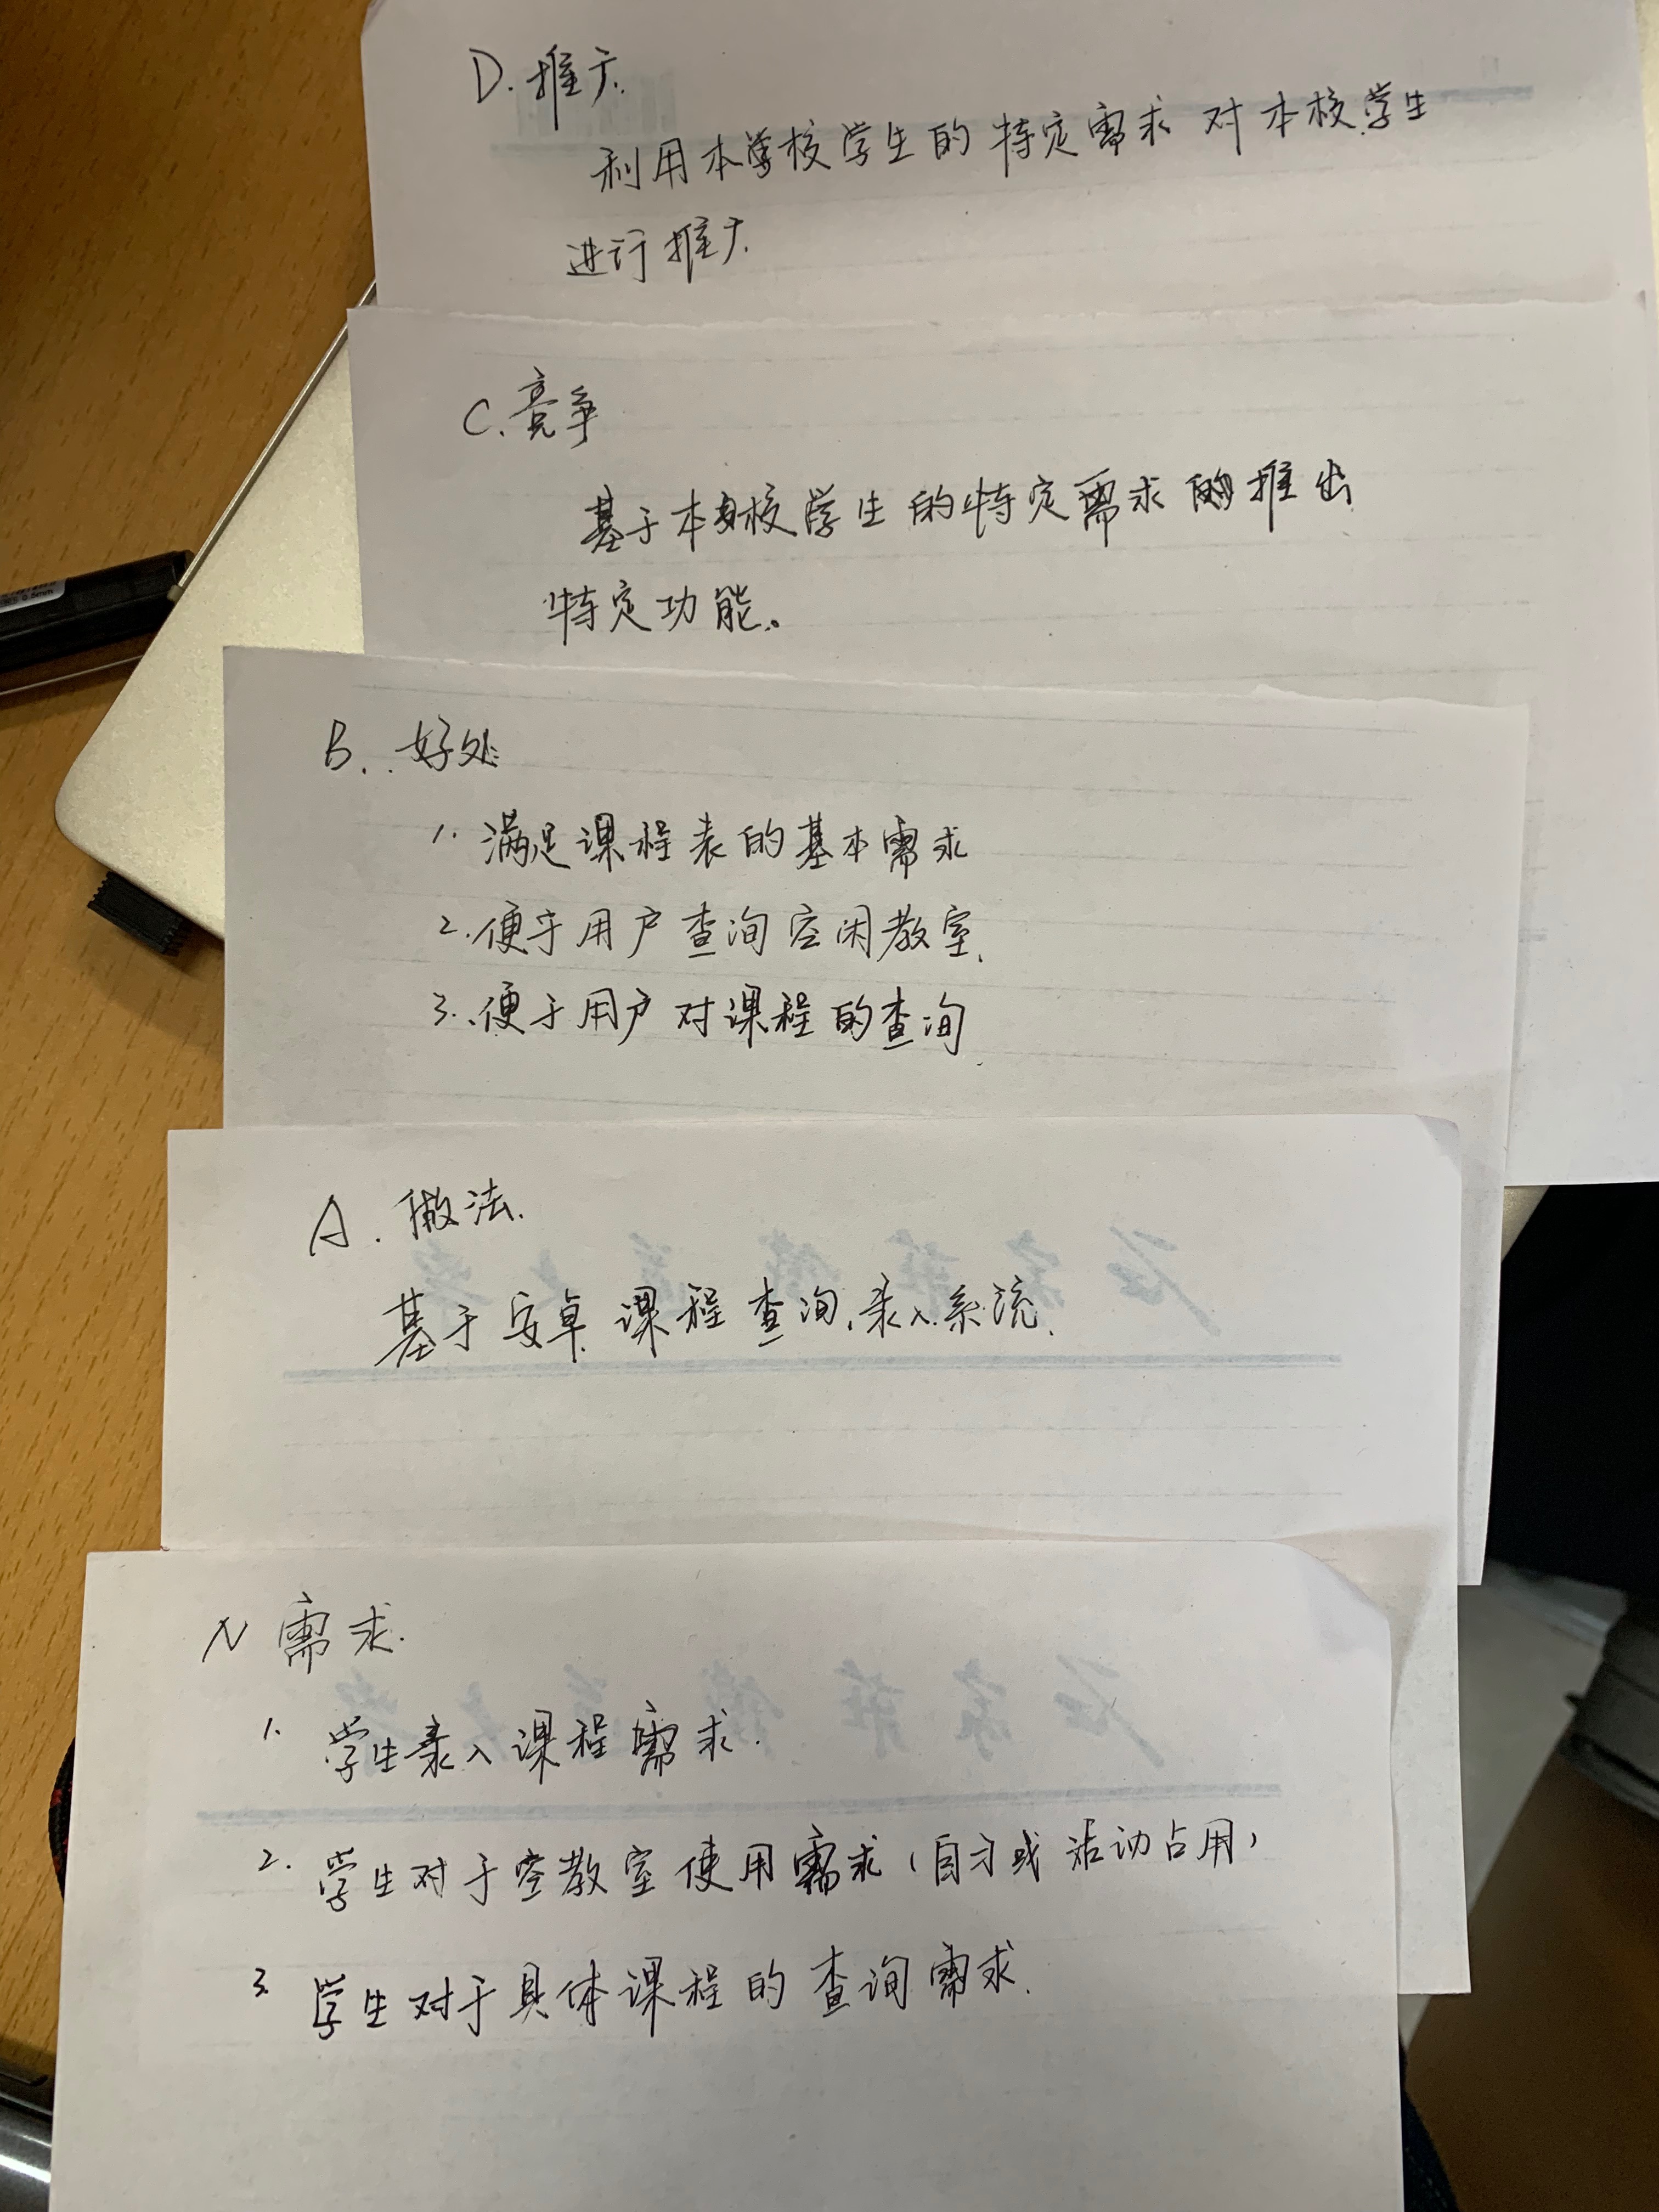 D. 推广.
利用本学校学生的特定需求对本校学生
进行推广.
C. 竞争
基于本校学生的特定需求的推出
特定功能。
B. 好处
1. 满足课程表的基本需求
2. 便于用户查询空闲教室.
3. 便于用户对课程的查询
A. 做法.
基于安卓课程查询、录入系统.
N 需求.
1. 学生录入课程需求.
2. 学生对于空教室使用需求(自习或活动占用)
3. 学生对于具体课程的查询需求.